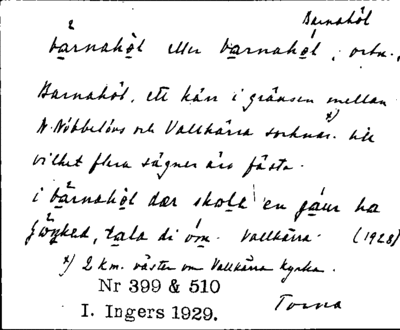 Barnahöl
bårnahöl eller bårnahól, ortn.,
Barnahöl, ett kärr i gränsen mellan
N. Nöbbelövs och Vallkärra socknar x) till
vilket flera sägner äro fästa.
i bårnahöl dær skola en ha
tala di óm. Vallkärra. (1928)
x) 2 km. väster om Vallkärra kyrka.
Nr 399 & 510
I. Ingers 1929.
Torna